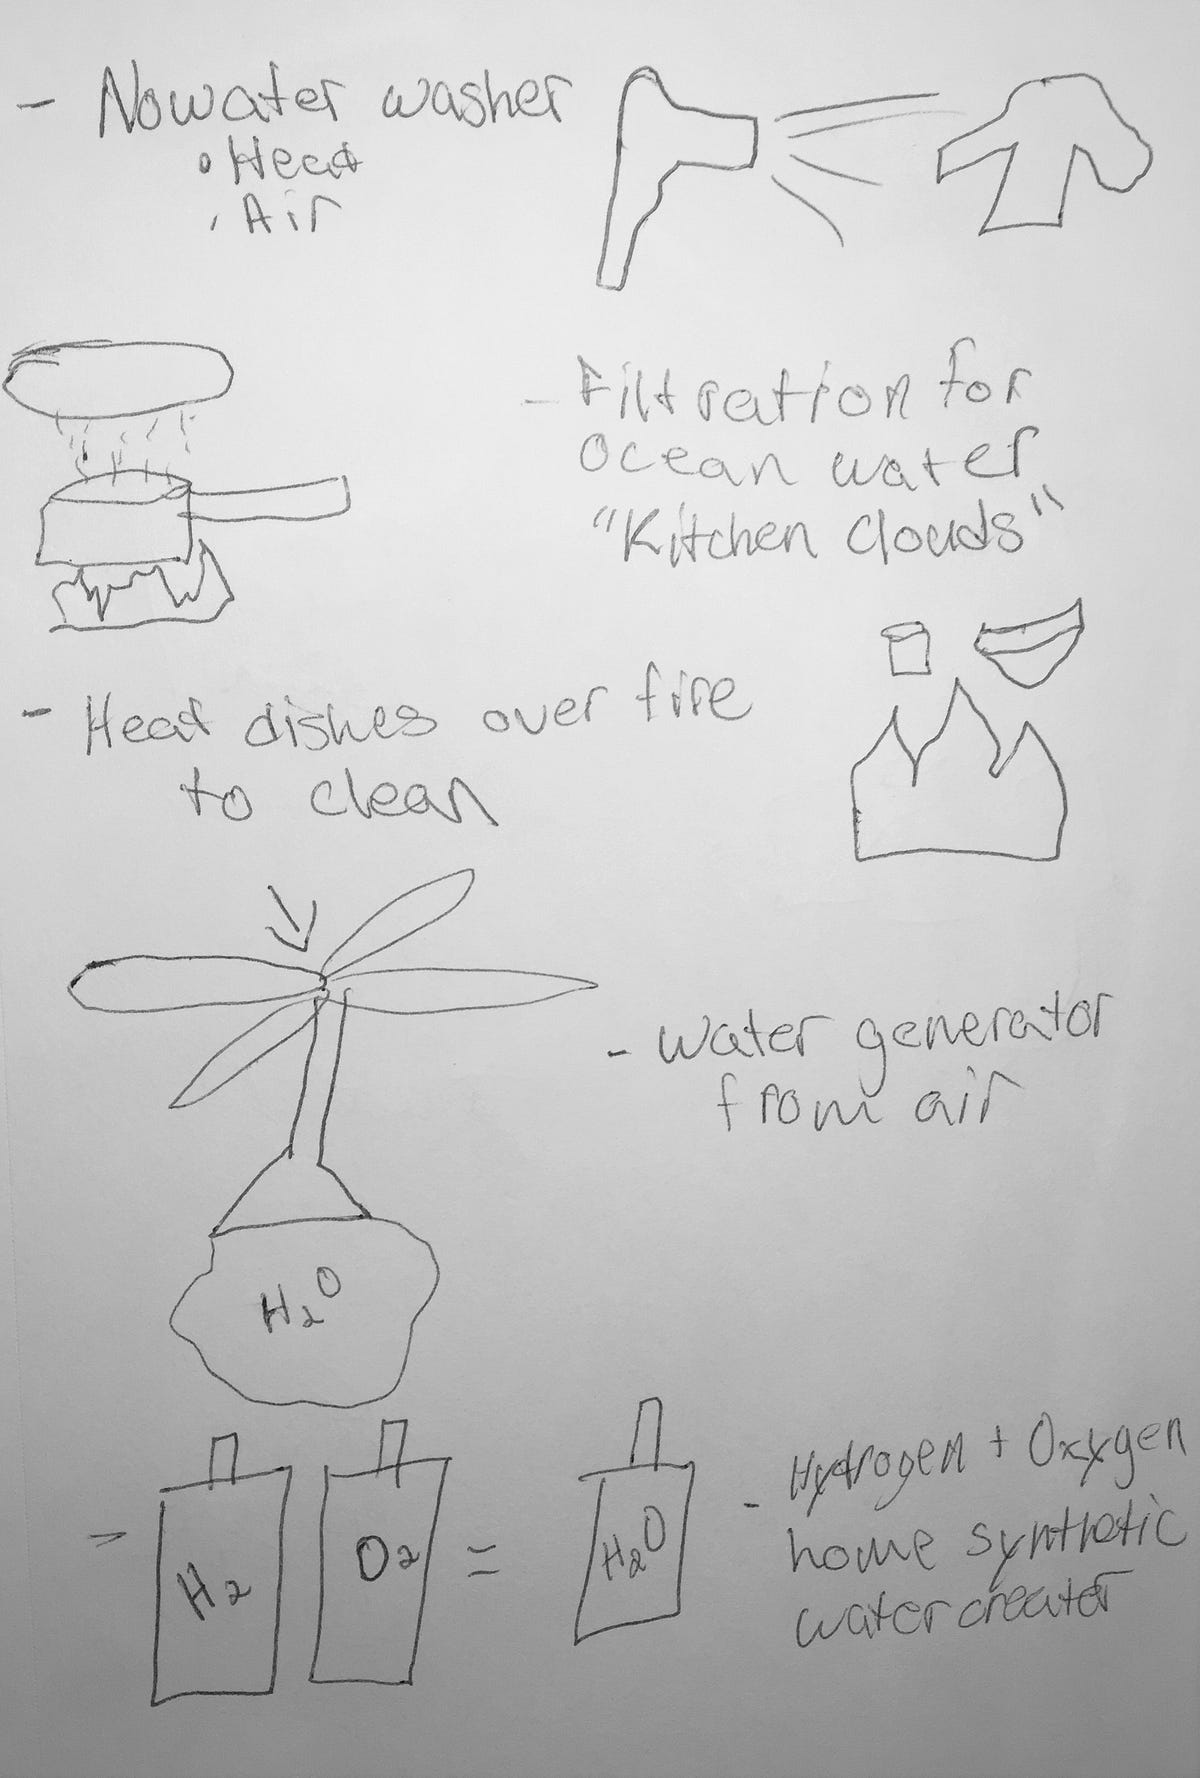 - Nowater washer
• Heat
• Air
- Filtration for
ocean water
"Kitchen Clouds"
- Heat dishes over fire
to clean
- water generator
from air
H₂O
- H₂ O₂ = H₂O
- Hydrogen + Oxygen
home synthetic
water creator